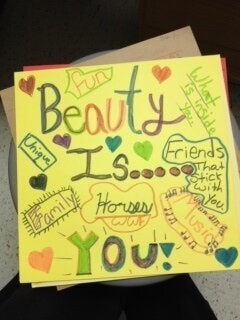 Fun
What
Is inside
you
Beauty
Unique
Is....
Friends
That
Stick
With
You
Family
Horses
Music
YOU!